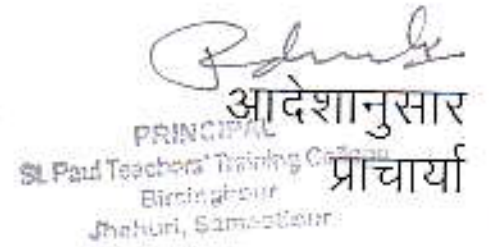 आदेशानुसार
PRINCIPAL
St. Paul Teachers' Training College
प्राचार्या
Birsinghpur
Jhahuri, Samastipur